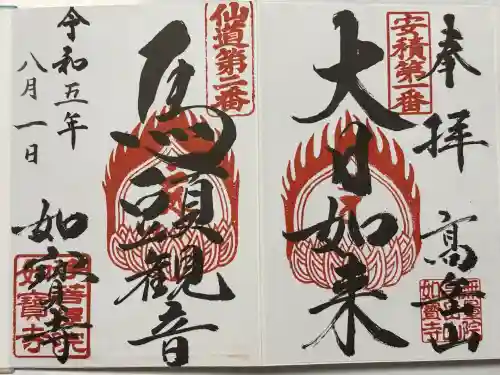 奉拝
安積第一番
大日如来
高畠山
如寶寺
仙道第二番
馬頭観音
令和五年
八月一日
如寳寺
如寶寺